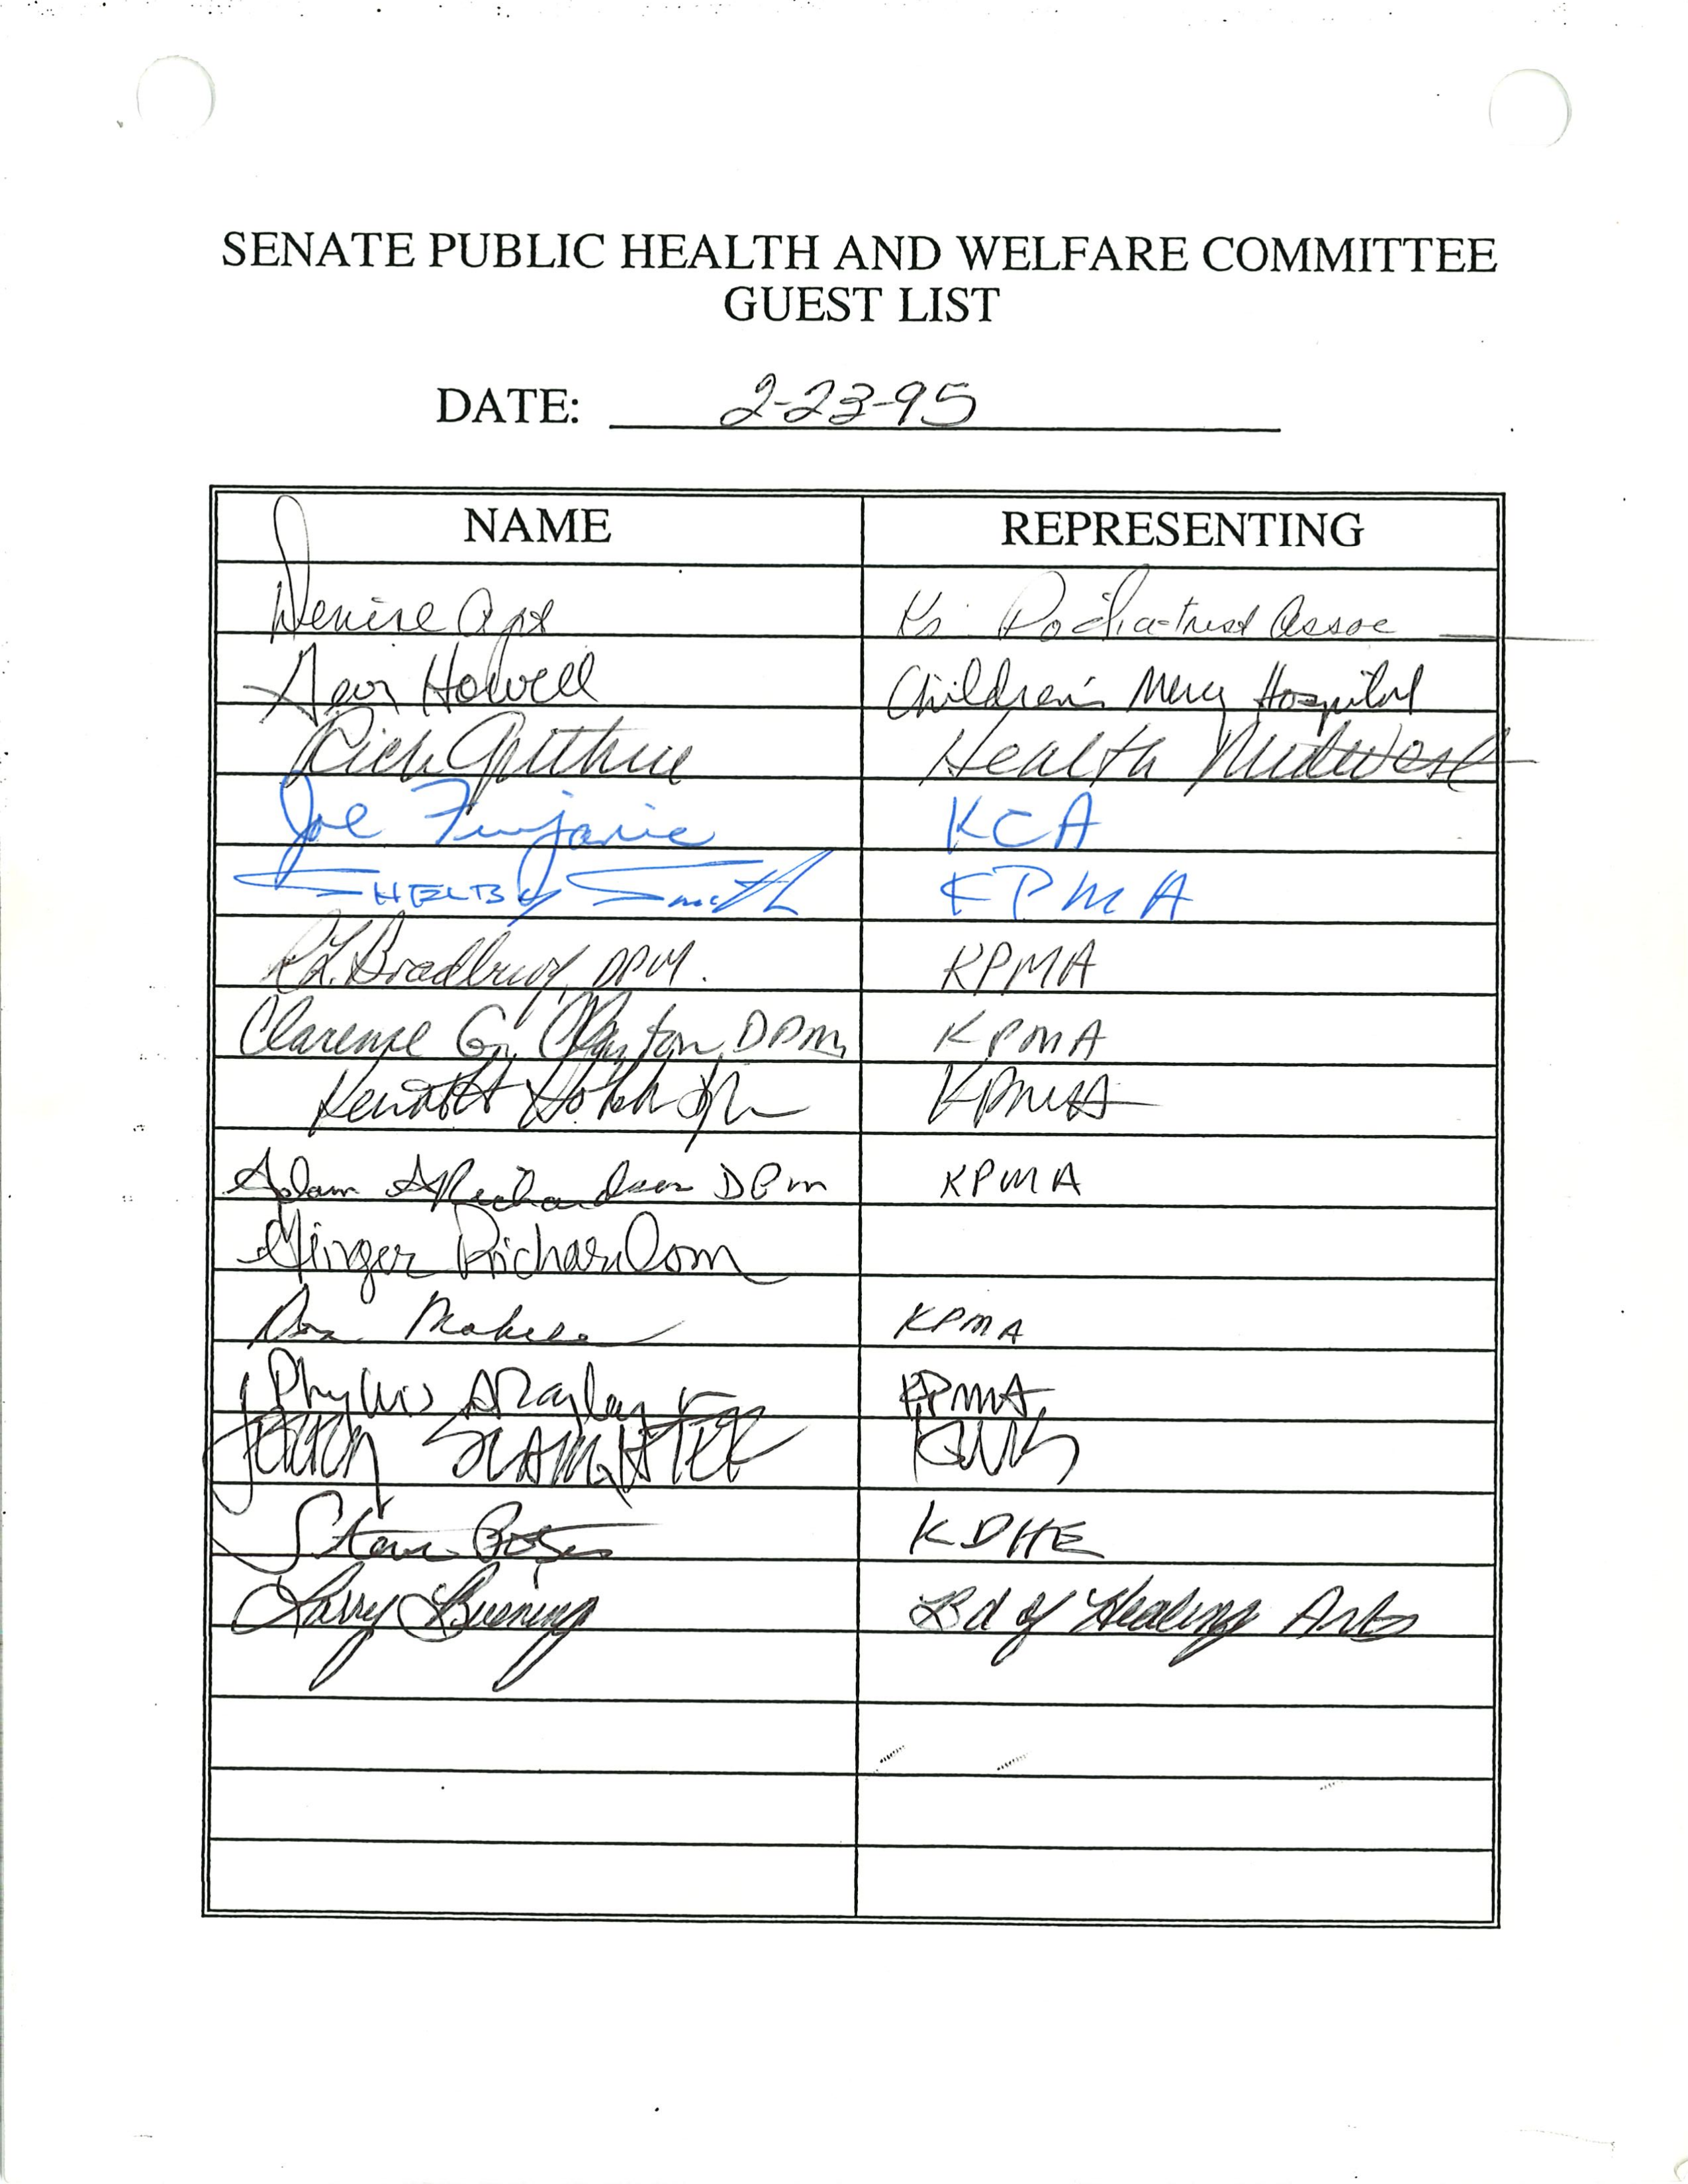 SENATE PUBLIC HEALTH AND WELFARE COMMITTEE
GUEST LIST
DATE: 2-23-95
NAME REPRESENTING
Denise Apt Ks Podiatrist Assoc
Howell Children's Mercy Hospital
Rich Guthrie Health Midwest
Joe Furjanic KCA
SHELBY Smith KPMA
R.L. Bradbury, DPM. KPMA
Clarence G. Clayton, DPM KPMA
Kenneth KPMA
Adam A Richardson DPM KPMA
Ginger Richardson
KPMA
Phyllis KPMA
SLAUGHTER
KDHE
Larry Buening Bd of Healing Arts